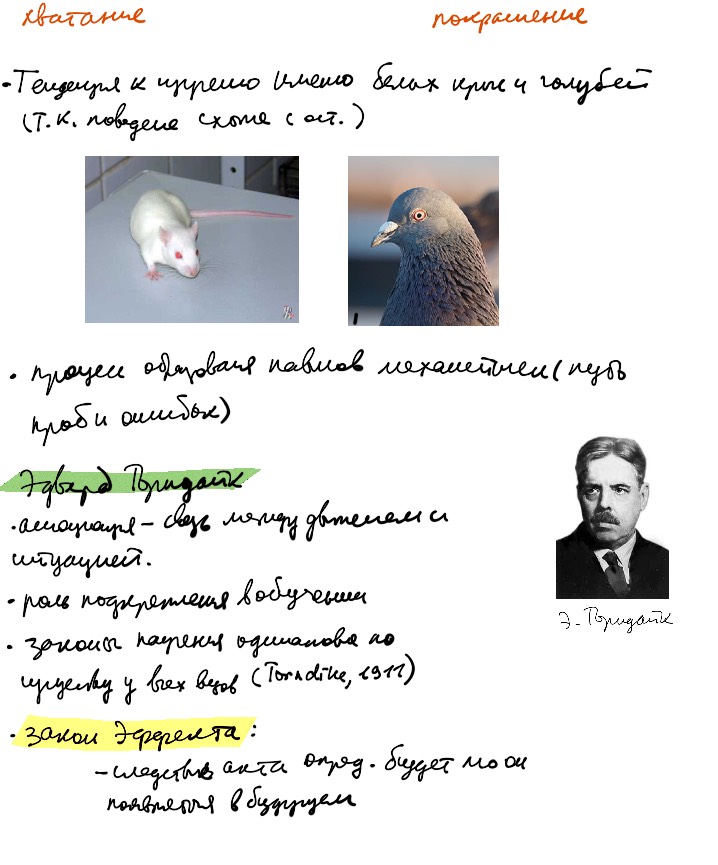 хватание покраснение
• Тенденция к изучению именно белых крыс и голубей
(т.к. поведение схоже с ост.)
• процесс образования навыков механистичен (путь
проб и ошибок)
Эдвард Торндайк
• ассоциация – связь между движением и
ситуацией.
Э. Торндайк
• роль подкрепления в обучении
• законы научения одинаковы по
существу у всех видов (Torndike, 1911)
• закон эффекта:
– следствие акта опред. будет ли он
появляться в будущем